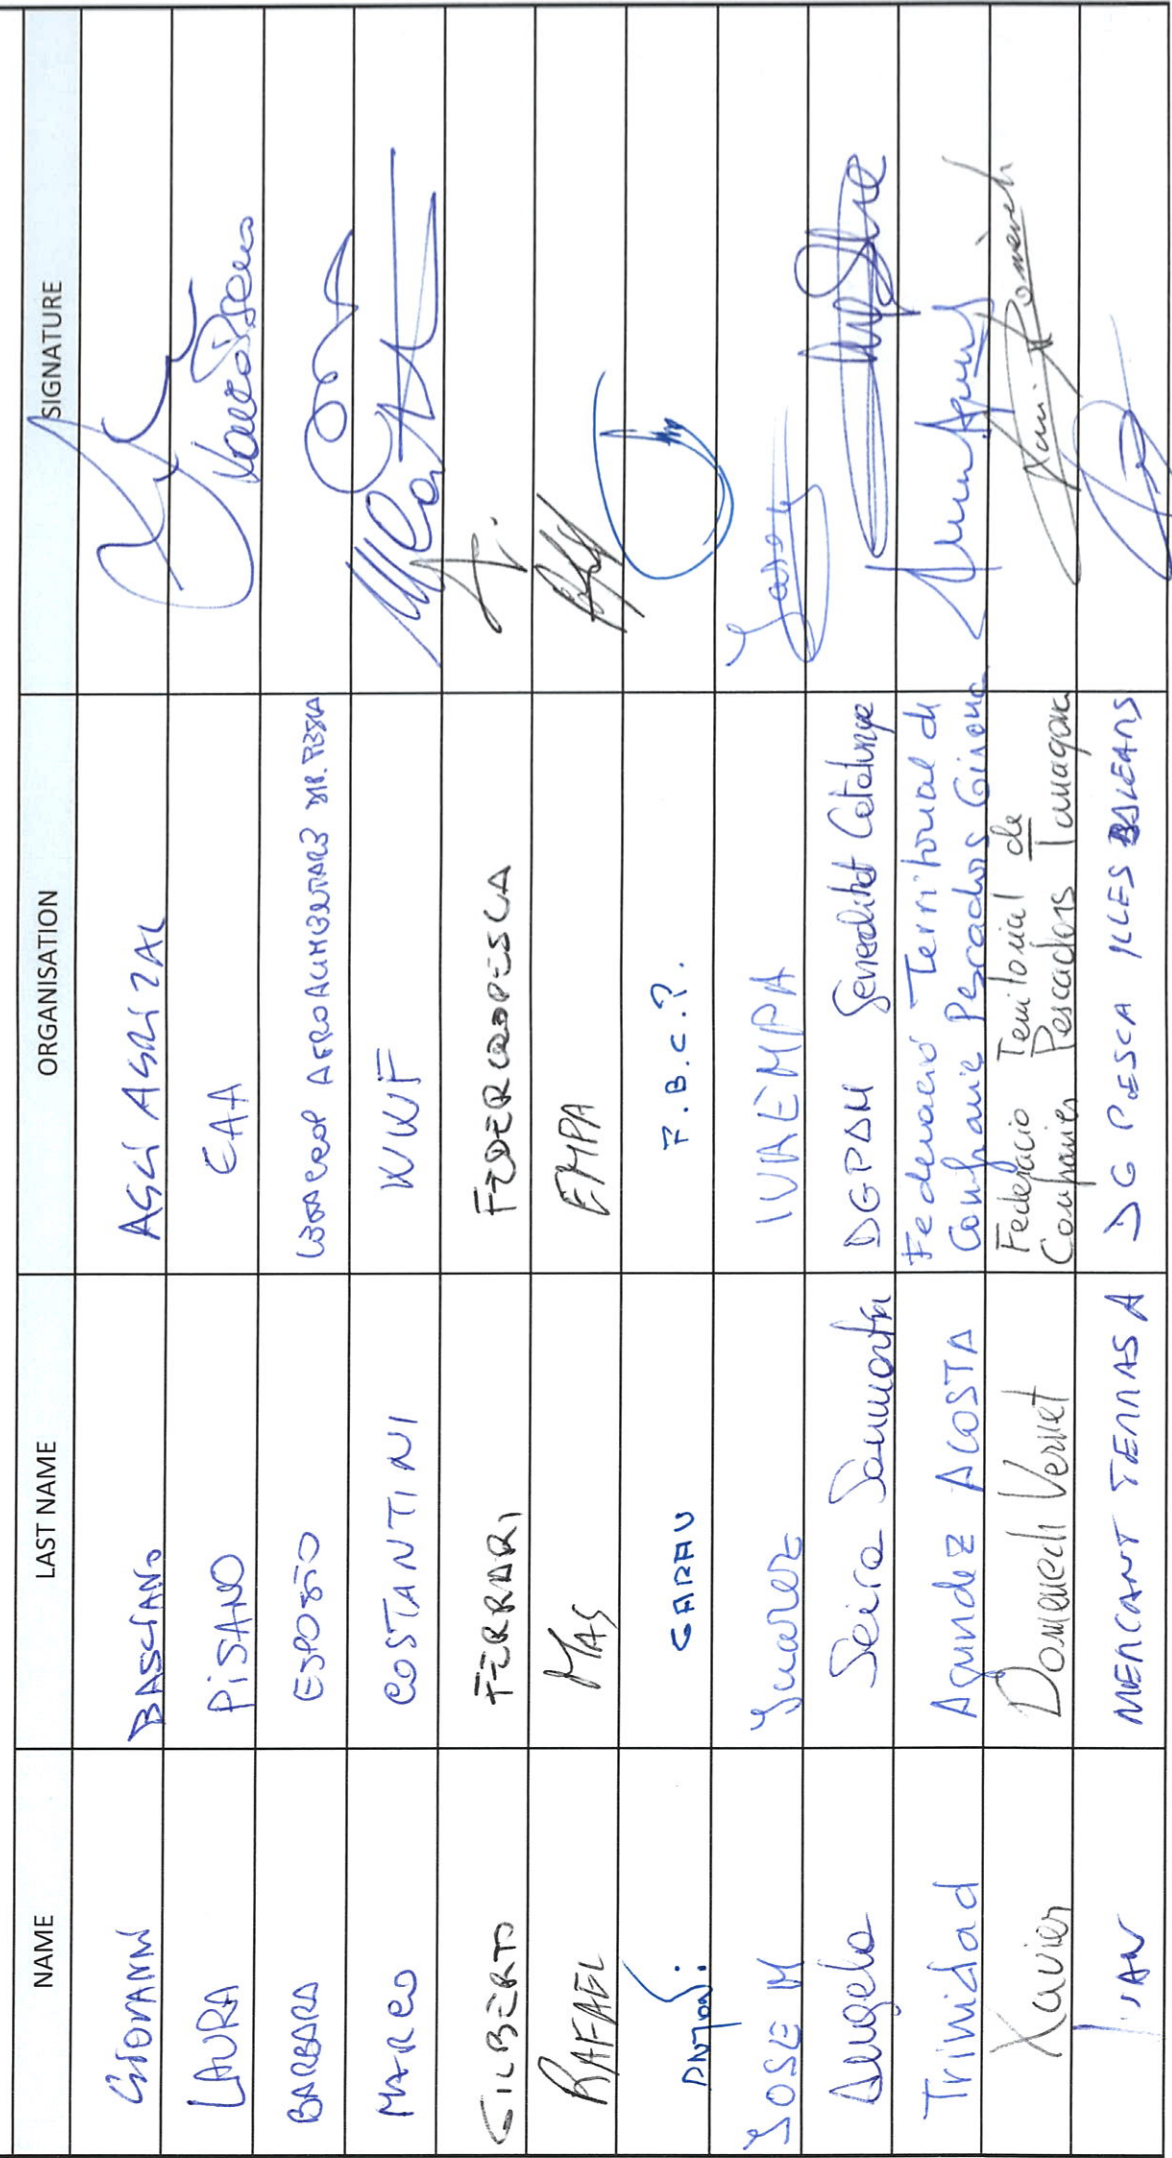 NAME LAST NAME ORGANISATION SIGNATURE
GIOVANNI BASCIANO AGCI AGRITAL
LAURA PISANO EAA
BARBARA ESPOSTO AGROALIMENTARE DIP. PESCA
MARCO COSTANTINI WWF
GILBERTO FERRARI FEDERCOOPESCA
RAFAEL MAS EMPA
ANTONI GARAU F.B.C.P.
JOSE M Juarez IVAEMPA
Angela Seira Sanmartín DGPAM Generalitat Catalunya
Trinidad Agundez ACOSTA Federació Territorial di
Confrarie Pescadors Girona
Xavier Domenech Vernet Federació Territorial de
Confraries Pescadors Tarragona Xavier Domènech
JUAN MERCANT TERRASA DG PESCA ILLES BALEARS